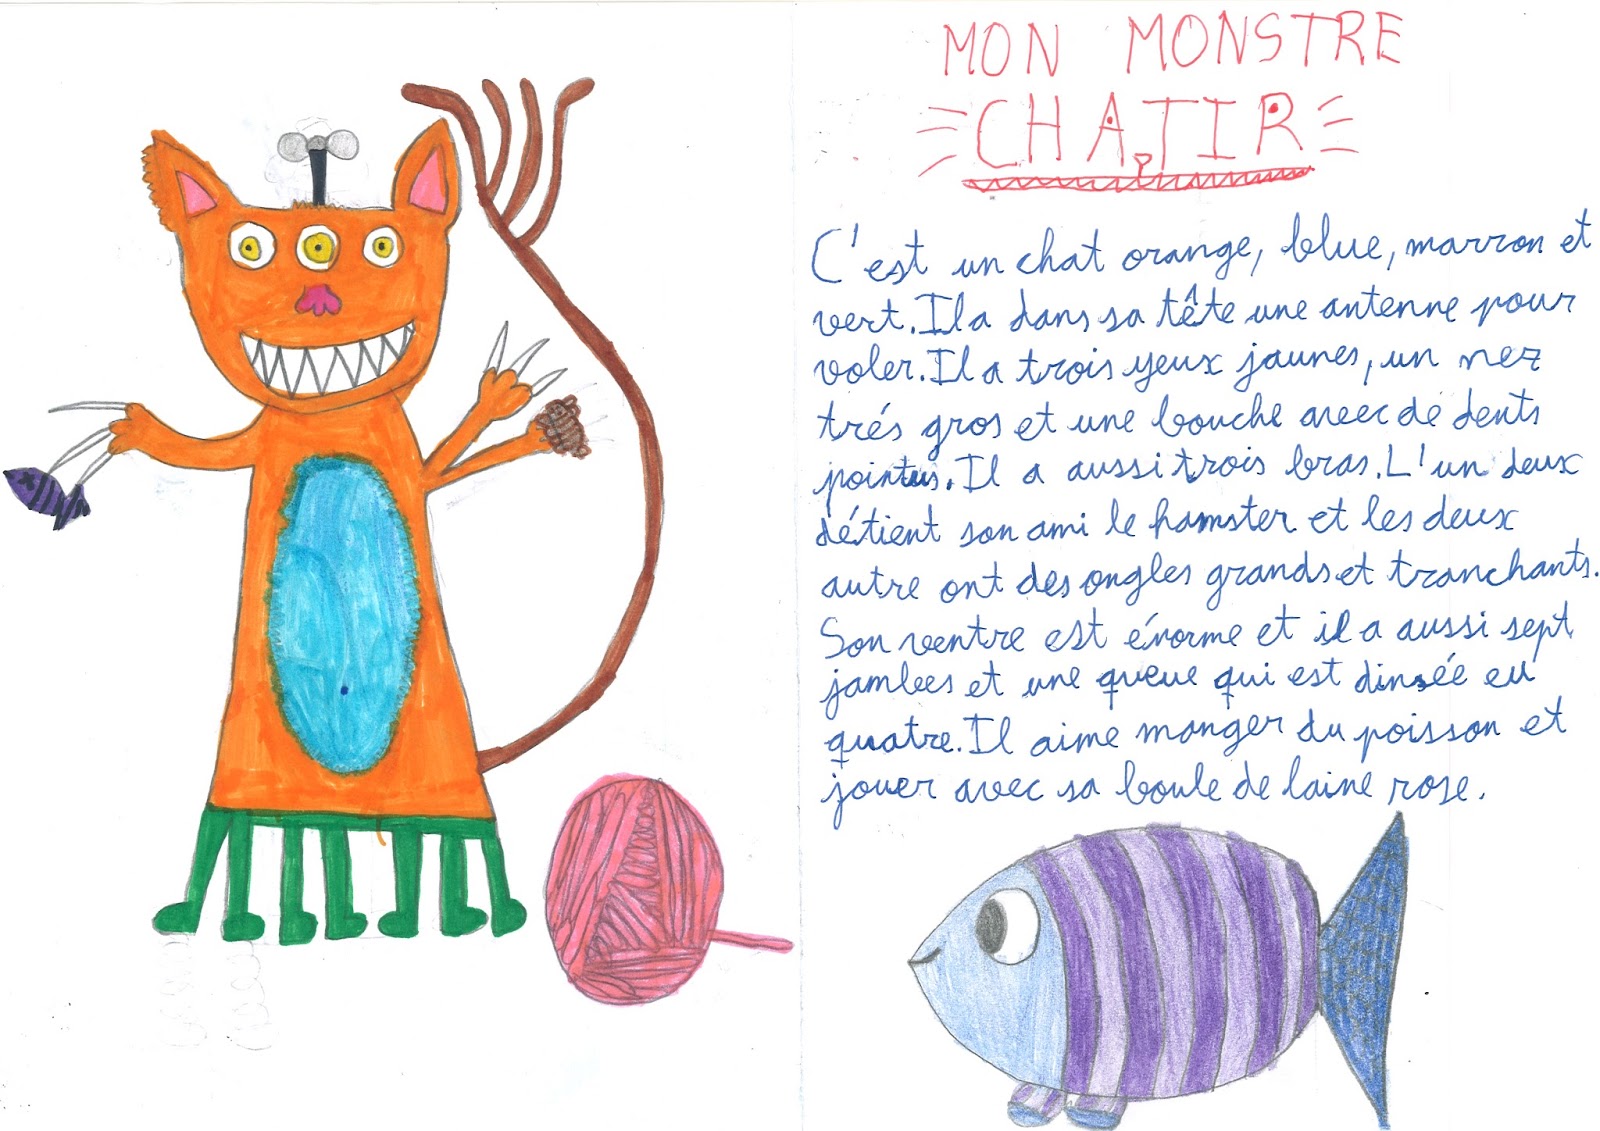 MON MONSTRE
CHATIR
C'est un chat orange, blue, marron et
vert. Il a dans sa tête une antenne pour
voler. Il a trois yeux jaunes, un nez
trés gros et une bouche avec de dents
pointus. Il a aussi trois bras. L'un deux
détient son ami le hamster et les deux
autre ont des ongles grands et tranchants.
Son ventre est énorme et il a aussi sept
jambes et une queue qui est dinsée eu
quatre. Il aime manger du poisson et
jouer avec sa boule de laine rose.